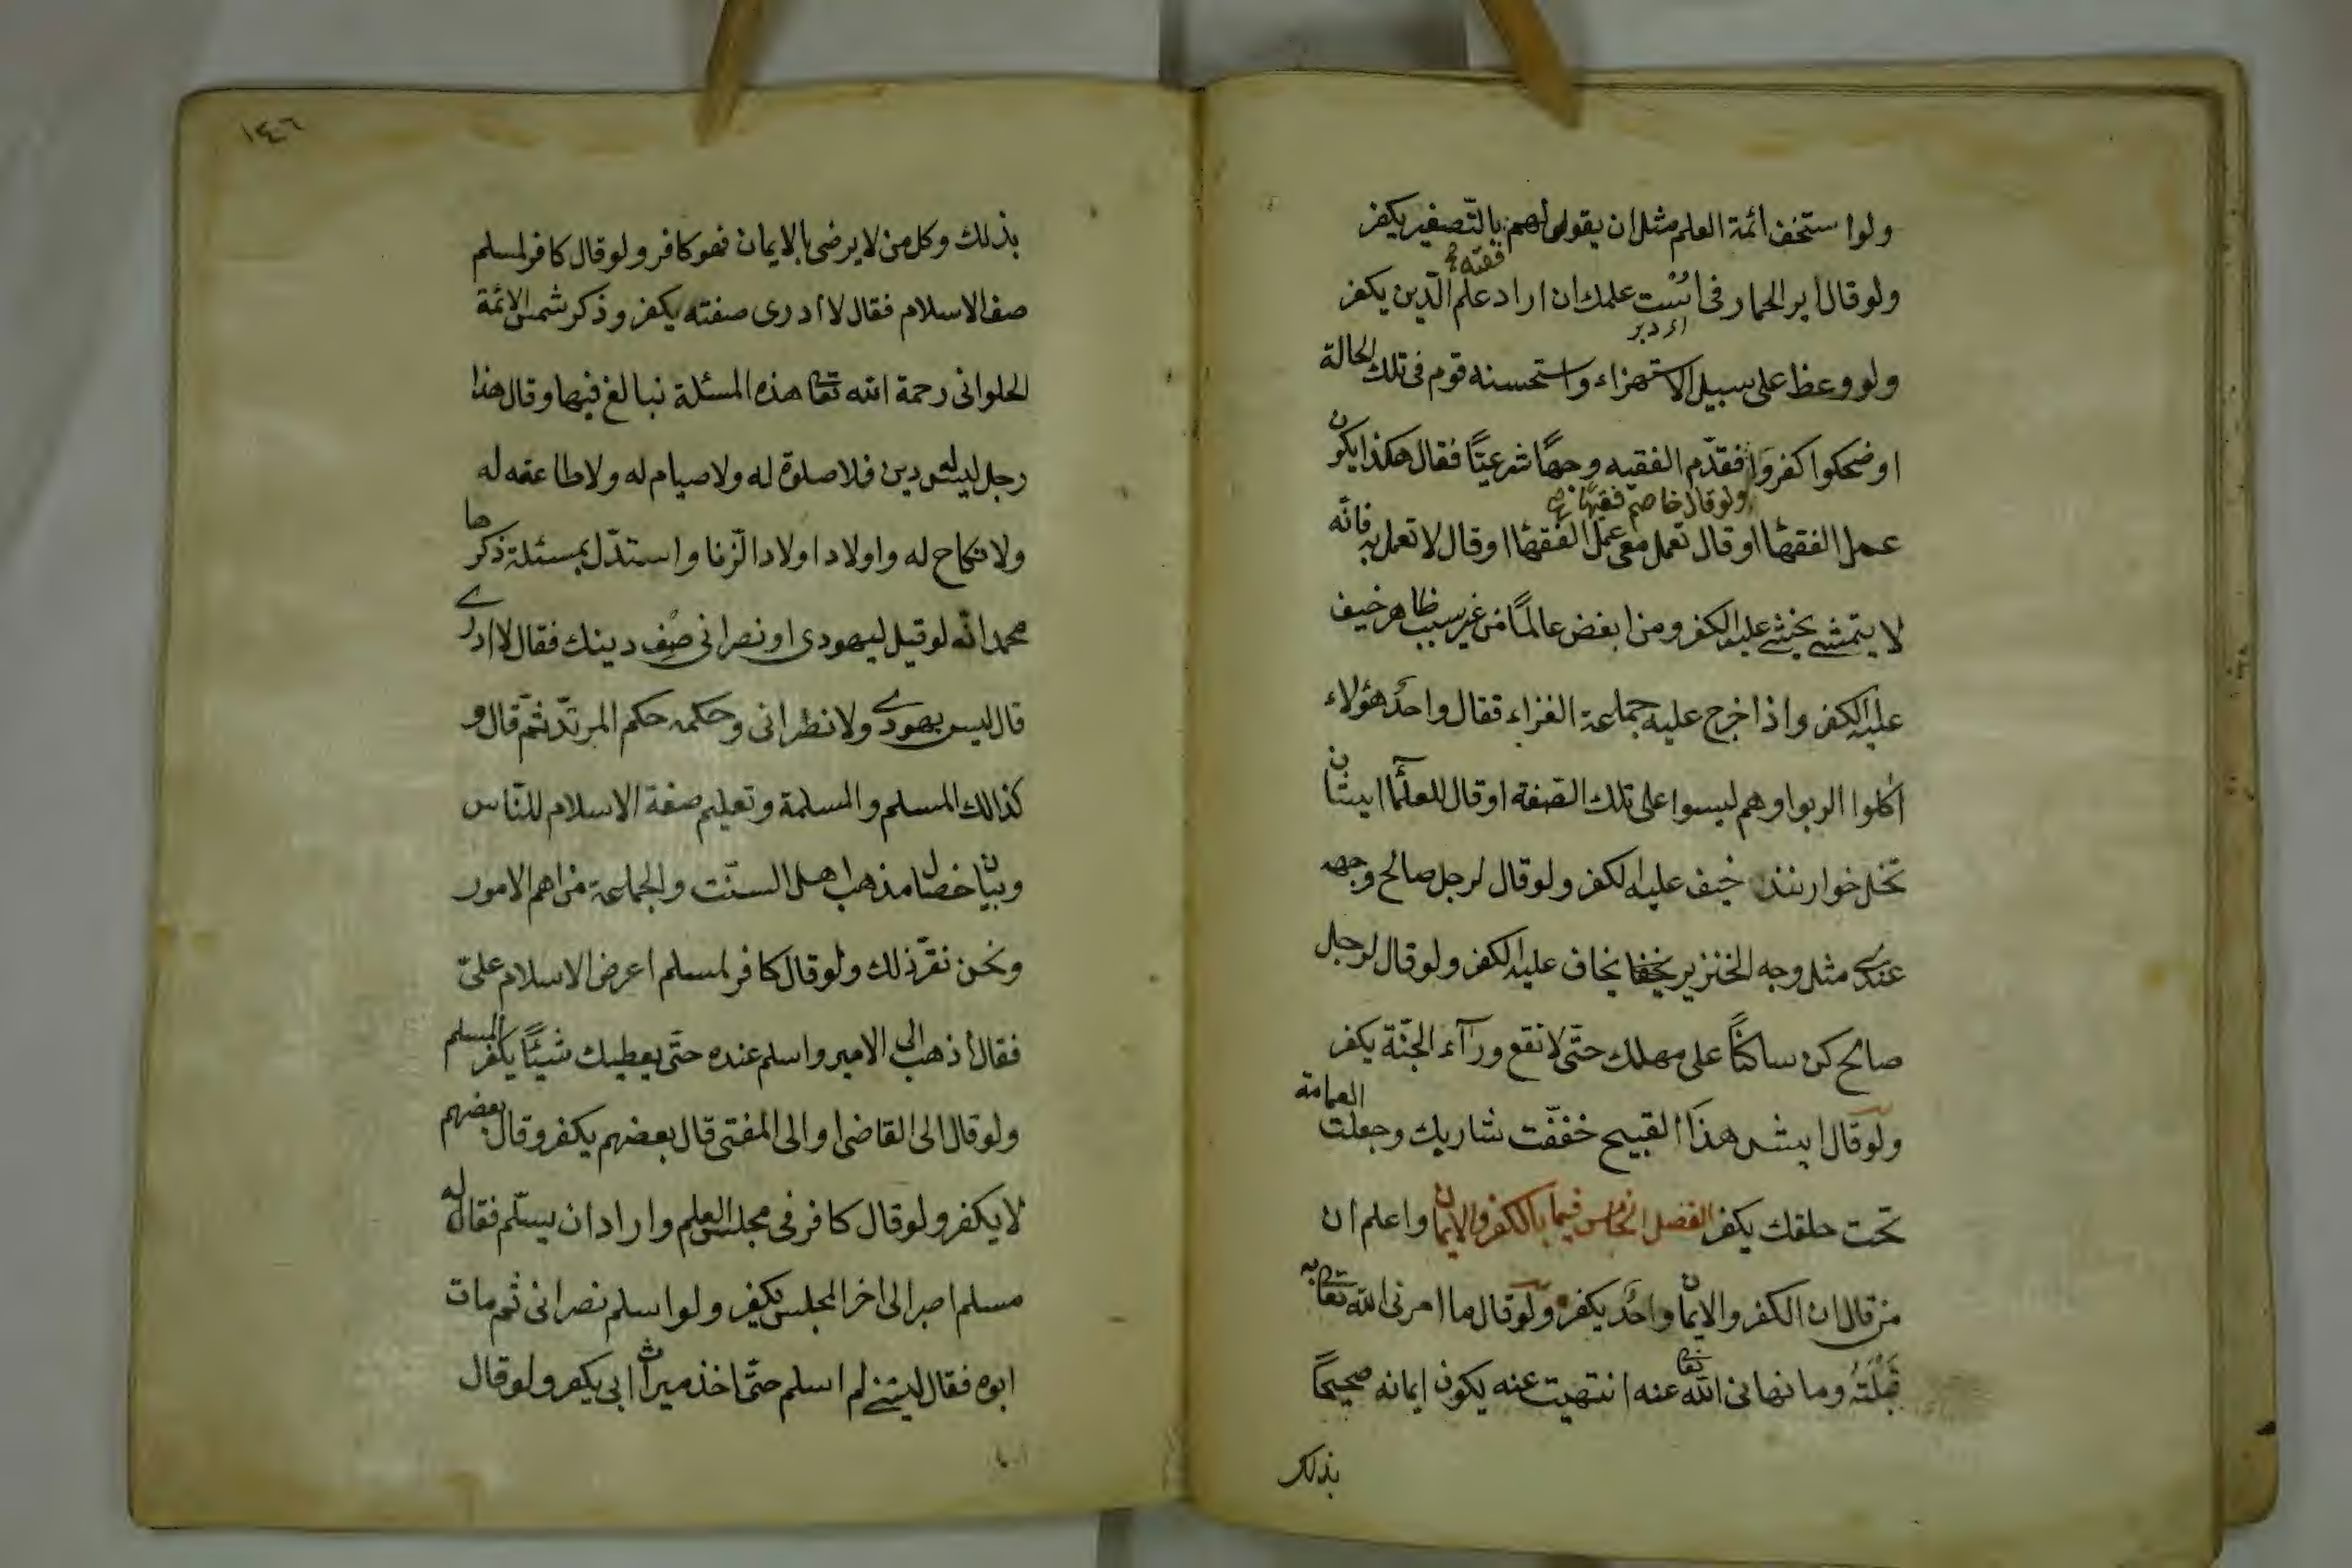 ولو استخف ائمة العلم مثل ان يقول لهم بالتصغير يكفر
فقيه
ولو قال اير الحمار فى است علمك ان اراد علم الدين يكفر
اى دبر
ولو وعظ على سبيل الاستهزاء واستحسنه قوم فى تلك الحالة
او ضحكوا كفروا فقدّم الفقيه وجهًا شرعيًّا فقال هكذا يكون
ولو قال خاصم فقيها
عمل الفقها او قال تعمل معى عمل الفقها او قال لا تعمل به فانّه
لا يتمشى يخشى عليه الكفر ومن ابغض عالمًا من غير سبب ظاهر خيف
عليه الكفر واذا خرج عليه جماعة الغزاء فقال واحد هؤلاء
اكلوا الربوا وهم ليسوا على تلك الصفة او قال للعلما ايشان
خيف عليه الكفر ولو قال لرجل صالح وجهه
عندى مثل وجه الخنزير يخاف عليه الكفر ولو قال لرجل
صالح كن ساكنًا على مهلك حتّى لا تقع ورآء الجنّة يكفر
ولو قال ايش هذا القبيح خففت شاربك وجعلت العمامة
تحت حلقك يكفر الفصل الخامس فيما بالكفر والايمان واعلم ان
من قال ان الكفر والايمان واحد يكفر ولو قال ما امرنى الله تعا به
قبلته وما نهانى الله تعا عنه انتهيت عنه يكون ايمانه صحيحًا
بذلك
١٤٦
بذلك وكل من لا يرضى بالايمان فهو كافر ولو قال كافر لمسلم
صف الاسلام فقال لا ادرى صفته يكفر وذكر شمس الائمة
الحلوانى رحمة الله تعا هذه المسئلة نبالغ فيها وقال هذا
رجل ليس له دين فلا صلوة له ولا صيام له ولا طاعة له
ولا نكاح له واولاد اولاد الزّنا واستدّل بمسئلة ذكرها
محمد انّه لو قيل ليهودى او نصرانى صف دينك فقال لا ادرى
قال ليس يهودى ولا نصرانى وحكمه حكم المرتدّ ثمّ قال و
كذالك المسلم والمسلمة وتعليم صفة الاسلام للنّاس
وبيان خصال مذهب اهل السنّت والجماعة من اهم الامور
ونحن نقرّ ذلك ولو قال كافر لمسلم اعرض الاسلام علىّ
فقال اذهب الى الامير واسلم عنده حتّى يعطيك شيئًا يكفر المسلم
ولو قال الى القاضى او الى المفتى قال بعضهم يكفر وقال بعضهم
لا يكفر ولو قال كافر فى مجلس العلم واراد ان يسلّم فقال له
مسلم اصبر الى اخر المجلس يكفر ولو اسلم نصرانى ثم مات
ابوه فقال ليتنى لم اسلم حتّى اخذ ميراث ابى يكفر ولو قال